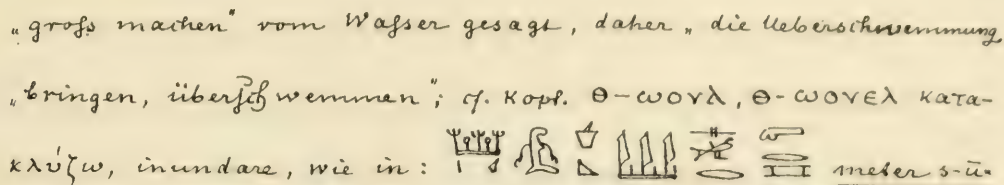 „groſs machen" vom Waſser gesagt, daher „die Ueberschwemmung
„bringen, überſchwemmen"; cf. Kopt. ⲑ-ⲱⲟⲩⲗ, ⲑ-ⲱⲟⲩⲉⲗ κατα-
κλύζω, inundare, wie in: meter s-ū-